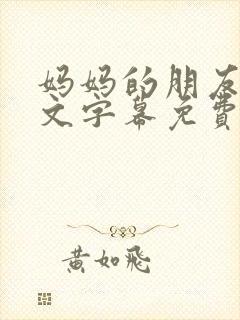 妈妈的朋友
文字幕免費
黃如飛